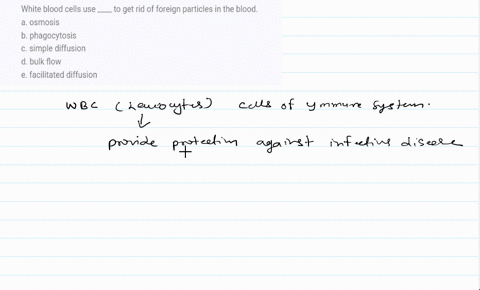 White blood cells use ____ to get rid of foreign particles in the blood.
a. osmosis
b. phagocytosis
c. simple diffusion
d. bulk flow
e. facilitated diffusion
WBC (Leucocytes) cells of immune system.
provide protection against infective disease